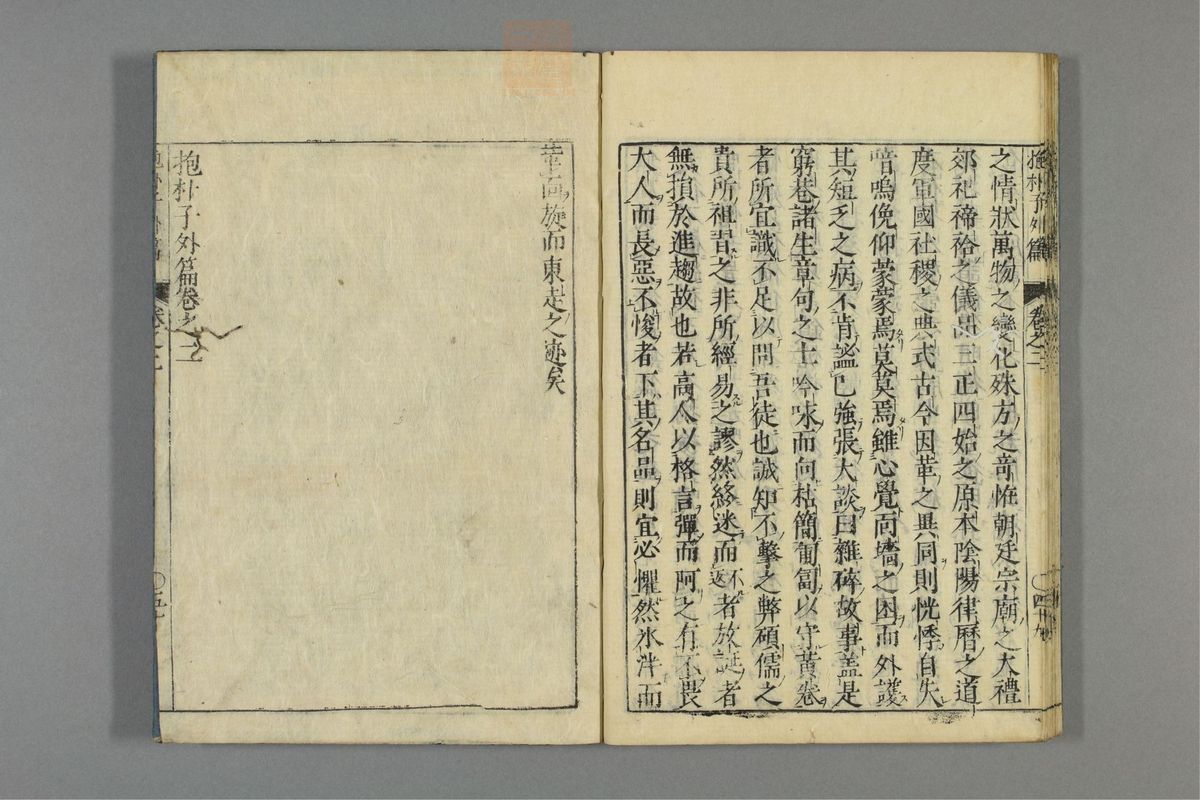 抱朴子外篇 卷之二 〇四十九
之情狀萬物之變化殊方之竒恠朝廷宗廟之大禮
郊祀禘祫之儀品三正四始之原本陰陽律曆之道
度軍國社稷之典式古今因革之異同則恍悸自失
喑嗚俛仰蒙蒙焉莫莫焉雖心覺面墻之困而外護
其短乏之病不肯謐已強張大談曰雜碎故事盖是
窮巷諸生章句之士吟咏而向枯簡匍匐以守黃卷
者所宜識不足以問吾徒也誠知不學之弊碩儒之
貴所祖習之非所經易之謬然終迷而不返者放誕者
無損於進趨故也若高人以格言彈而呵之有不畏
大人而長惡不悛者下其名品則宜必懼然氷泮而
革面旋而東走之迹矣
抱朴子外篇卷之二
抱朴子外篇 卷之二 〇五十